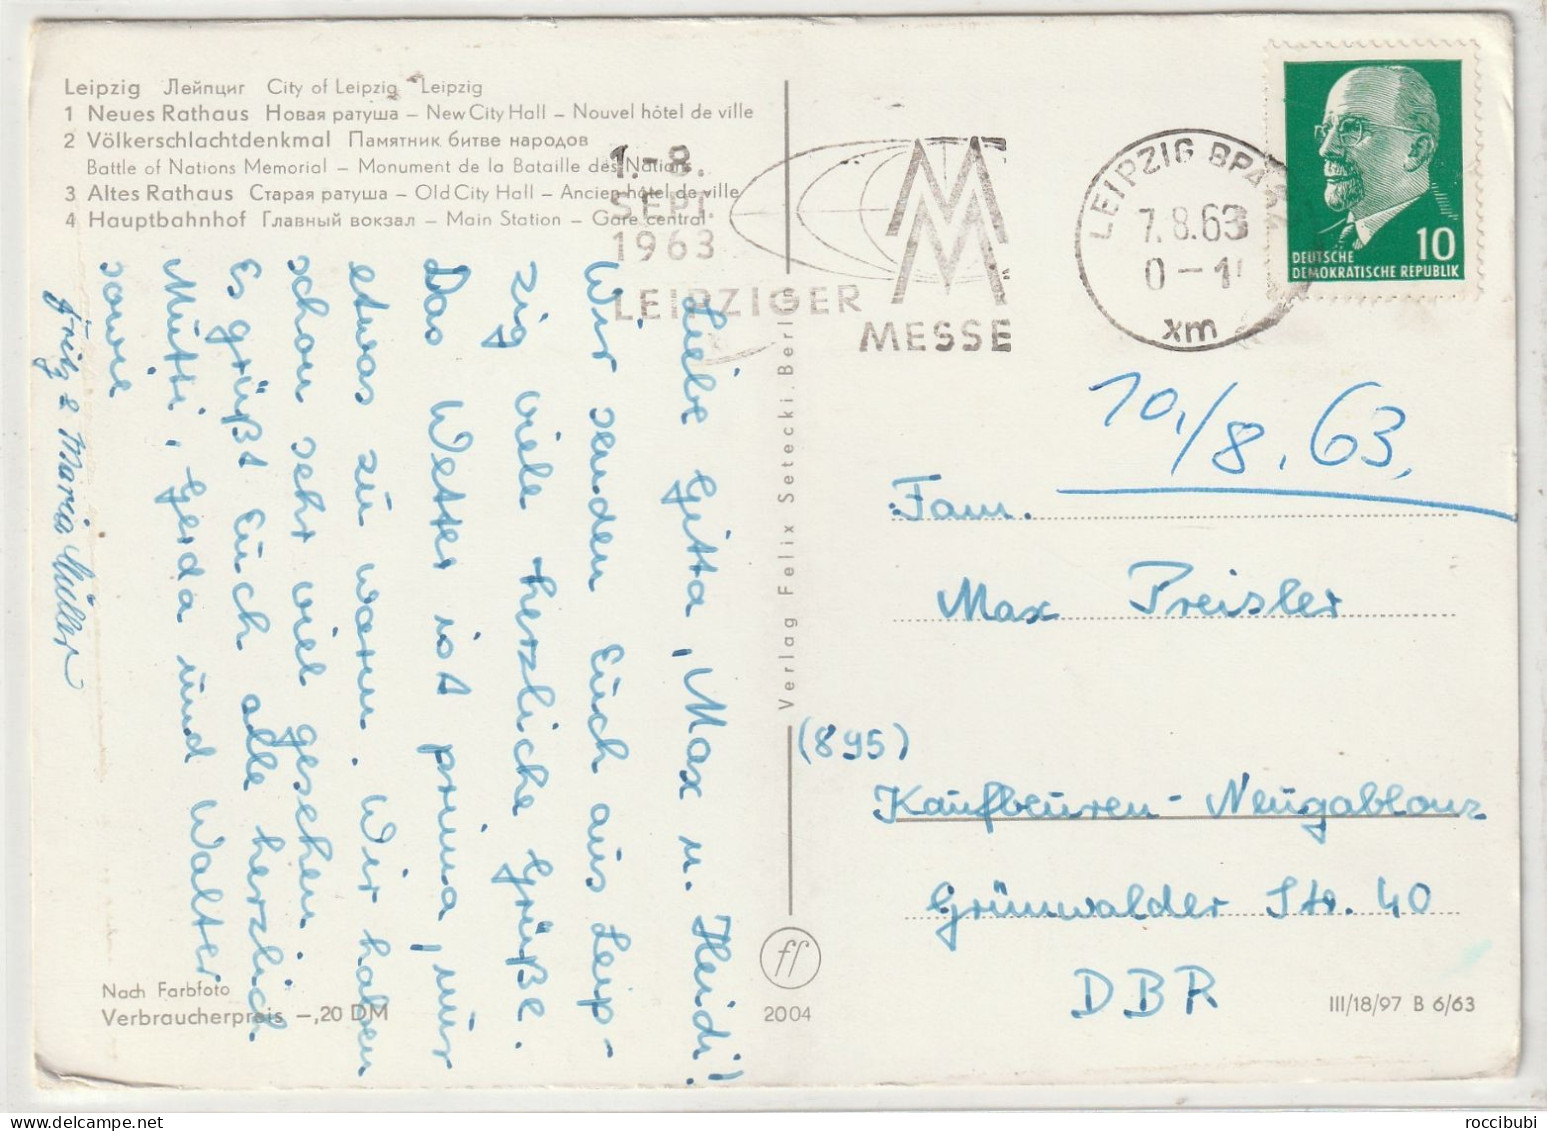 Leipzig Лейпциг City of Leipzig Leipzig
1 Neues Rathaus Новая ратуша – New City Hall – Nouvel hôtel de ville
2 Völkerschlachtdenkmal Памятник битве народов
Battle of Nations Memorial – Monument de la Bataille des Nations
3 Altes Rathaus Старая ратуша – Old City Hall – Ancien hôtel de ville
4 Hauptbahnhof Главный вокзал – Main Station – Gare central
1.–8.
SEPT.
1963
LEIPZIGER
MESSE
MM
LEIPZIG BPA
7.8.63
0–1
xm
10
DEUTSCHE
DEMOKRATISCHE REPUBLIK
Liebe Gitta, Max u. Heidi!
Wir senden Euch aus Leip-
zig viele herzliche Grüße.
Das Wetter ist prima, nur
etwas zu warm. Wir haben
schon sehr viel gesehen.
Es grüßt Euch alle herzlich
Mutti, Gerda und Walter
sowie
Fritz & Maria Müller
10./8.63.
Fam.
Max Preisler
(895)
Kaufbeuren-Neugablonz
Grünwalder Str. 40
DBR
Verlag Felix Setecki, Berlin
ff
2004
Nach Farbfoto
Verbraucherpreis –,20 DM
III/18/97 B 6/63
roccibubi